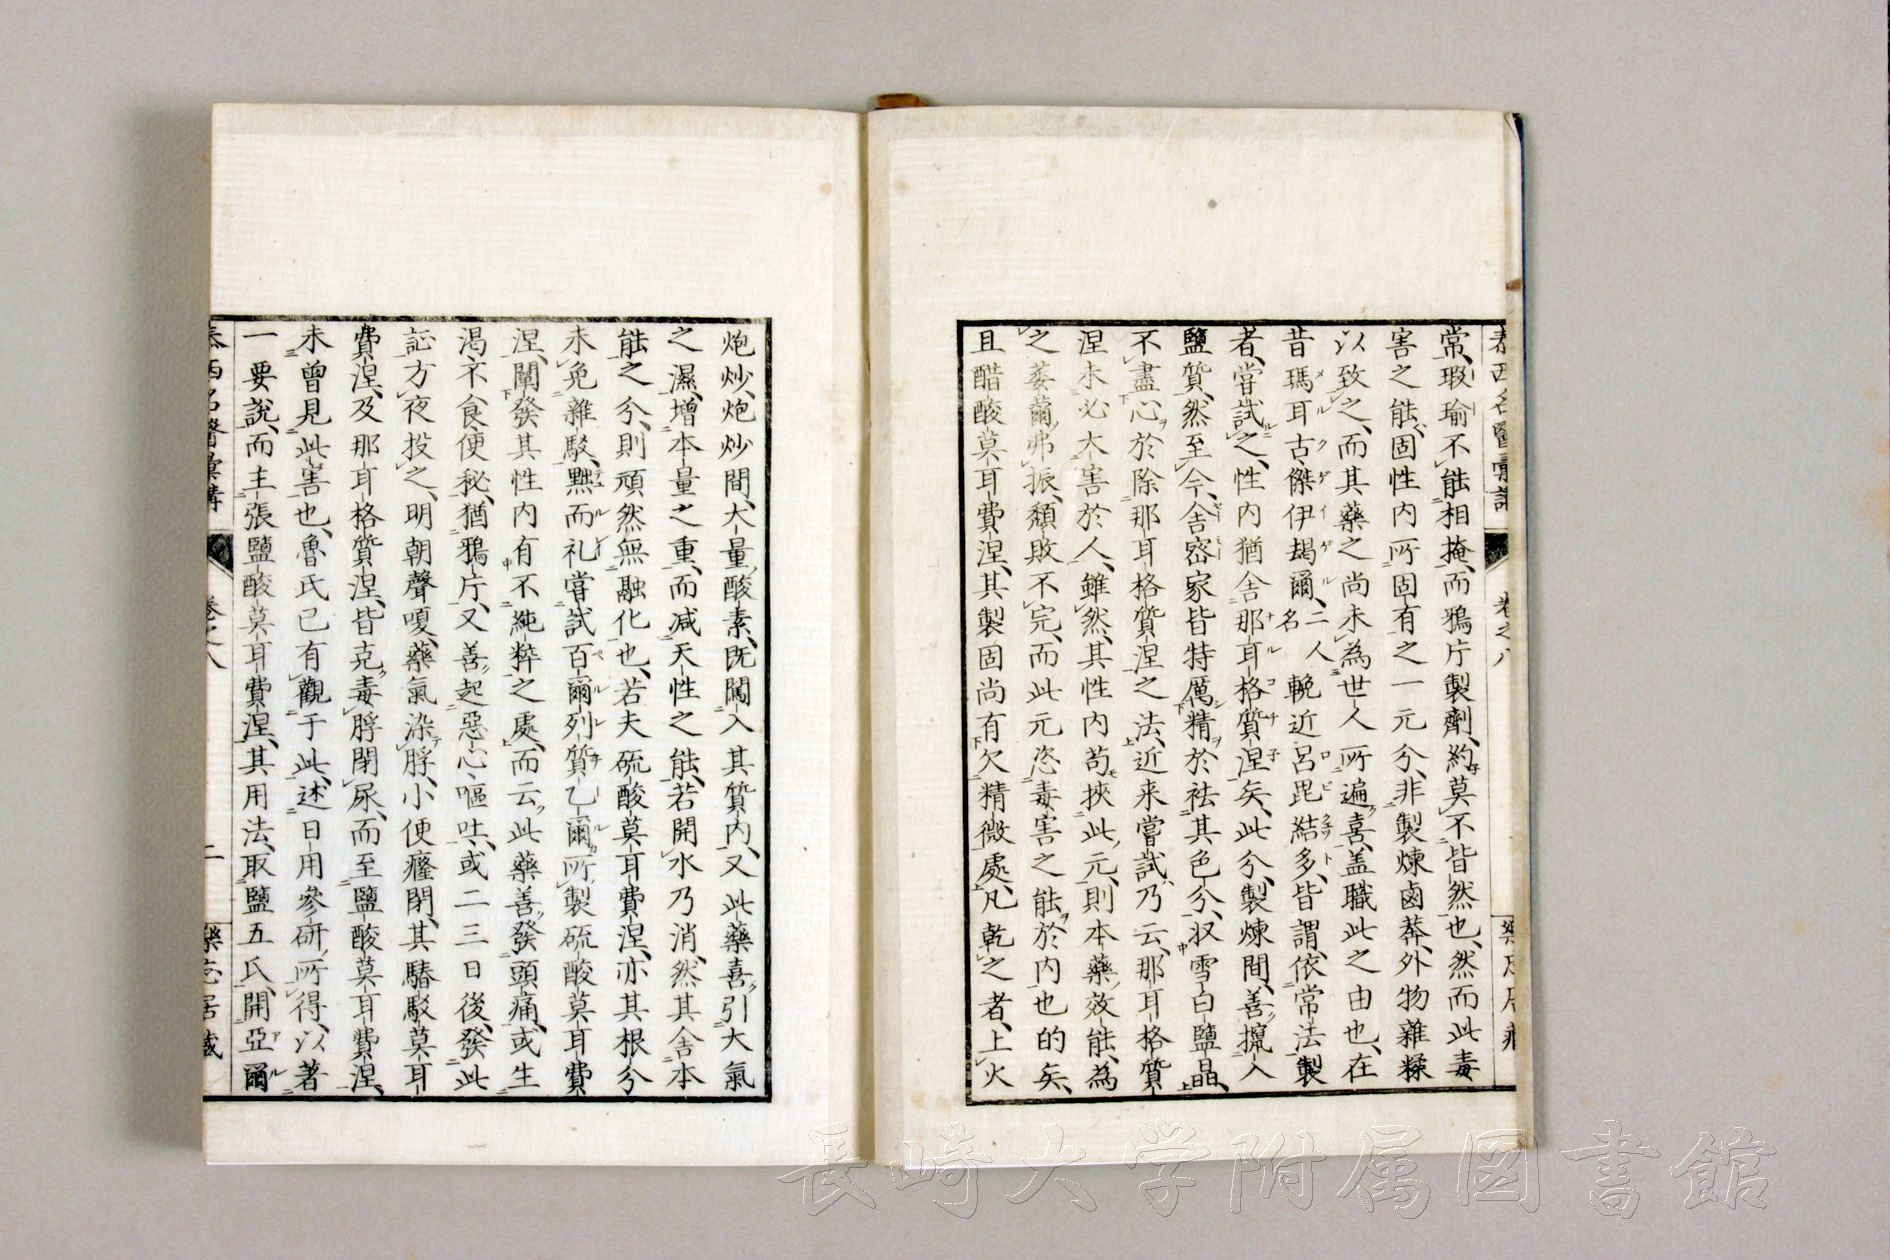 泰西名醫彙講 卷之八
常瑕瑜不能相掩而鴉片製劑約莫不皆然也然而此毒
害之能固性内所固有之一元兮非製煉鹵莽外物雜糅
以致之而其藥之尚未為世人所遍喜盖職此之由也在
昔瑪耳古傑伊朅爾二人名輓近呂毘結多皆謂依常法製
者嘗試之性内猶舎那耳格質涅矣此兮製煉間善攪入
鹽質然至今舎密家皆特厲精於祛其色兮収雪白鹽晶
不盡心於除那耳格質涅之法近来嘗試乃云那耳格質
涅未必大害於人雖然其性内苟挾此元則本藥效能為
之萎薾弗振頽敗不完而此元恣毒害之能於内也的矣
且醋酸莫耳費涅其製固尚有欠精微處凡乾之者上火
炮炒炮炒間大量酸素既闖入其質内又此藥喜引大氣
之濕増本量之重而減天性之能若開水乃消然其舎本
能之兮則頑然無融化也若夫硫酸莫耳費涅亦其根兮
未免雜駁黙而礼嘗試百爾列質乙爾所製硫酸莫耳費
涅闡發其性内有不純粹之處而云此藥善發頭痛或生
渇不食便秘猶鴉片又善起惡心嘔吐或二三日後發此
証方夜投之明朝聲嗄藥氣染脬小便癃閉其駳駁莫耳
費涅及那耳格質涅皆克毒脬閉尿而至鹽酸莫耳費涅
未曾見此害也魯氏已有觀于此述日用參研所得以著
一要説而主張鹽酸莫耳費涅其用法取鹽五氏開亞爾
泰西名醫彙講 卷之八 二 樂志居藏
長崎大学附属図書館